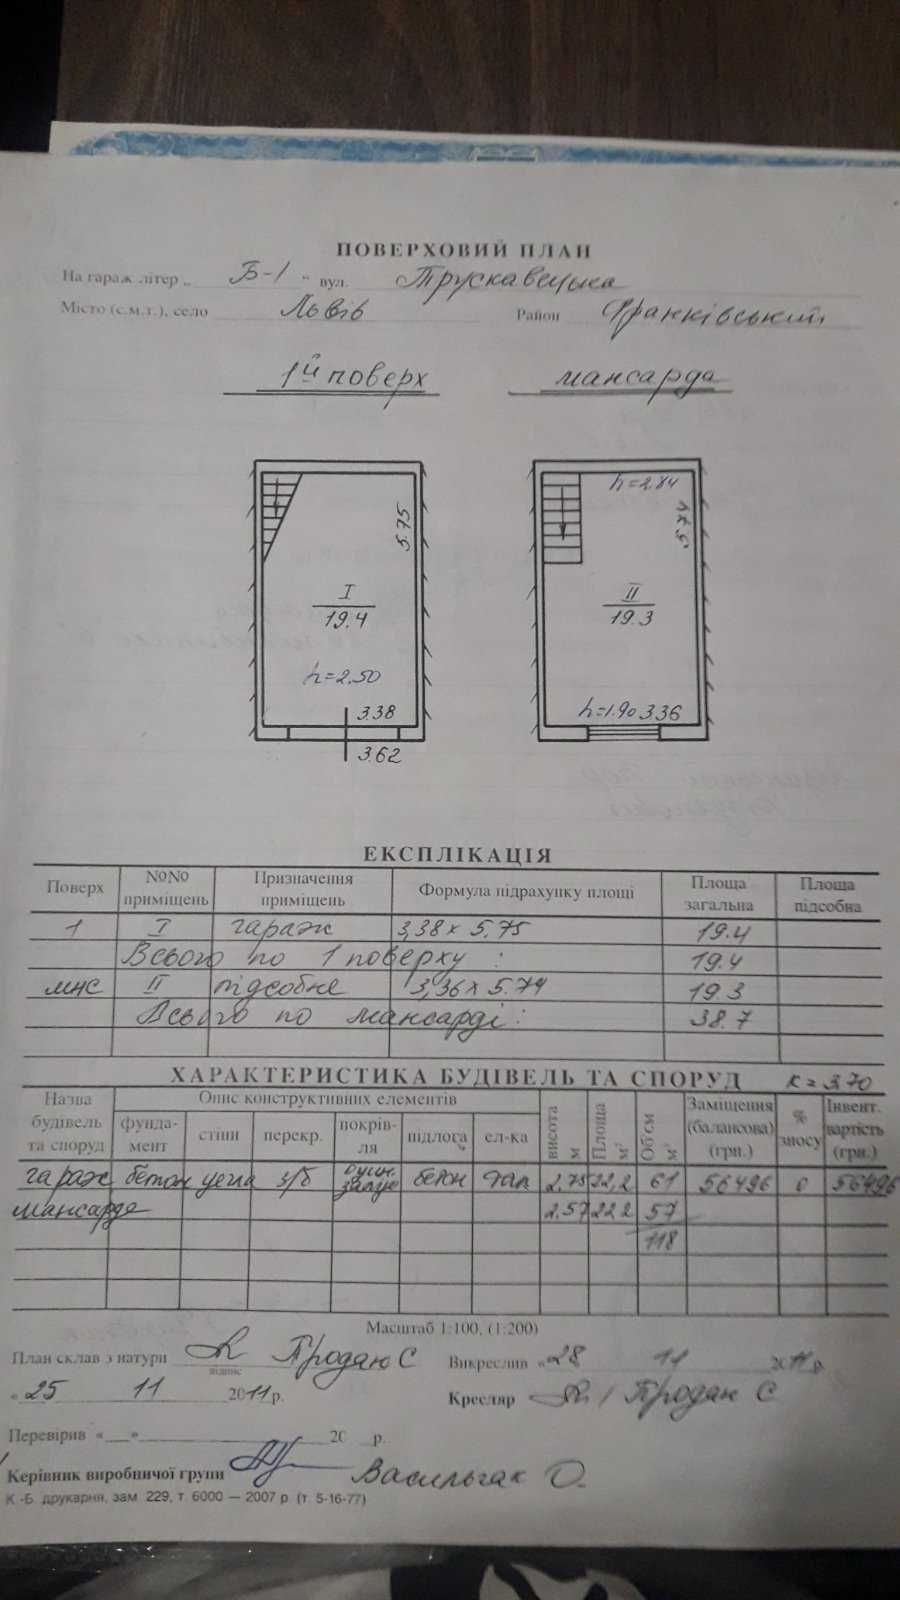 ПОВЕРХОВИЙ ПЛАН
На гараж літер „ Б-1 “ вул. Трускавецька
Місто (с.м.т.), село Львів Район Франківський
1й поверх мансарда
h=2.84
5.75 5.74
I II
19.4 19.3
h=2.50
3.38 h=1.90 3.36
3.62
ЕКСПЛІКАЦІЯ
Поверх №№ приміщень Призначення приміщень Формула підрахунку площі Площа загальна Площа підсобна
1 I гараж 3,38 х 5.75 19.4
Всього по 1 поверху : 19.4
мнс II підсобне 3,36 х 5.74 19.3
Всього по мансарді: 38.7
ХАРАКТЕРИСТИКА БУДІВЕЛЬ ТА СПОРУД К = 3,70
Назва будівель та споруд Опис конструктивних елементів висота м Площа м² Об'єм м³ Заміщення (балансова) (грн.) % зносу Інвент. вартість (грн.)
фунда-мент стіни перекр. покрів-ля підлога ел-ка
гараж бетон цегла з/б бетон 2.75 22,2 61 56496 0 56496
мансарда 2.57 22.2 57
118
Масштаб 1:100, (1:200)
План склав з натури Продан С Викреслив «28 11 2011 р.
підпис
« 25 11 2011 р. Кресляр Продан С
Перевірив «__»__ 20 р.
Керівник виробничої групи Васильчак О.
К.-Б. друкарня, зам. 229, т. 6000 — 2007 р. (т. 5-16-77)